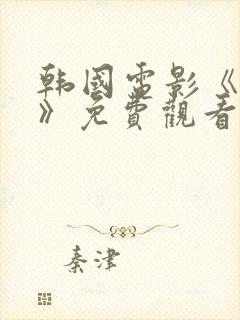 韩國電影《
》免費觀看
秦津